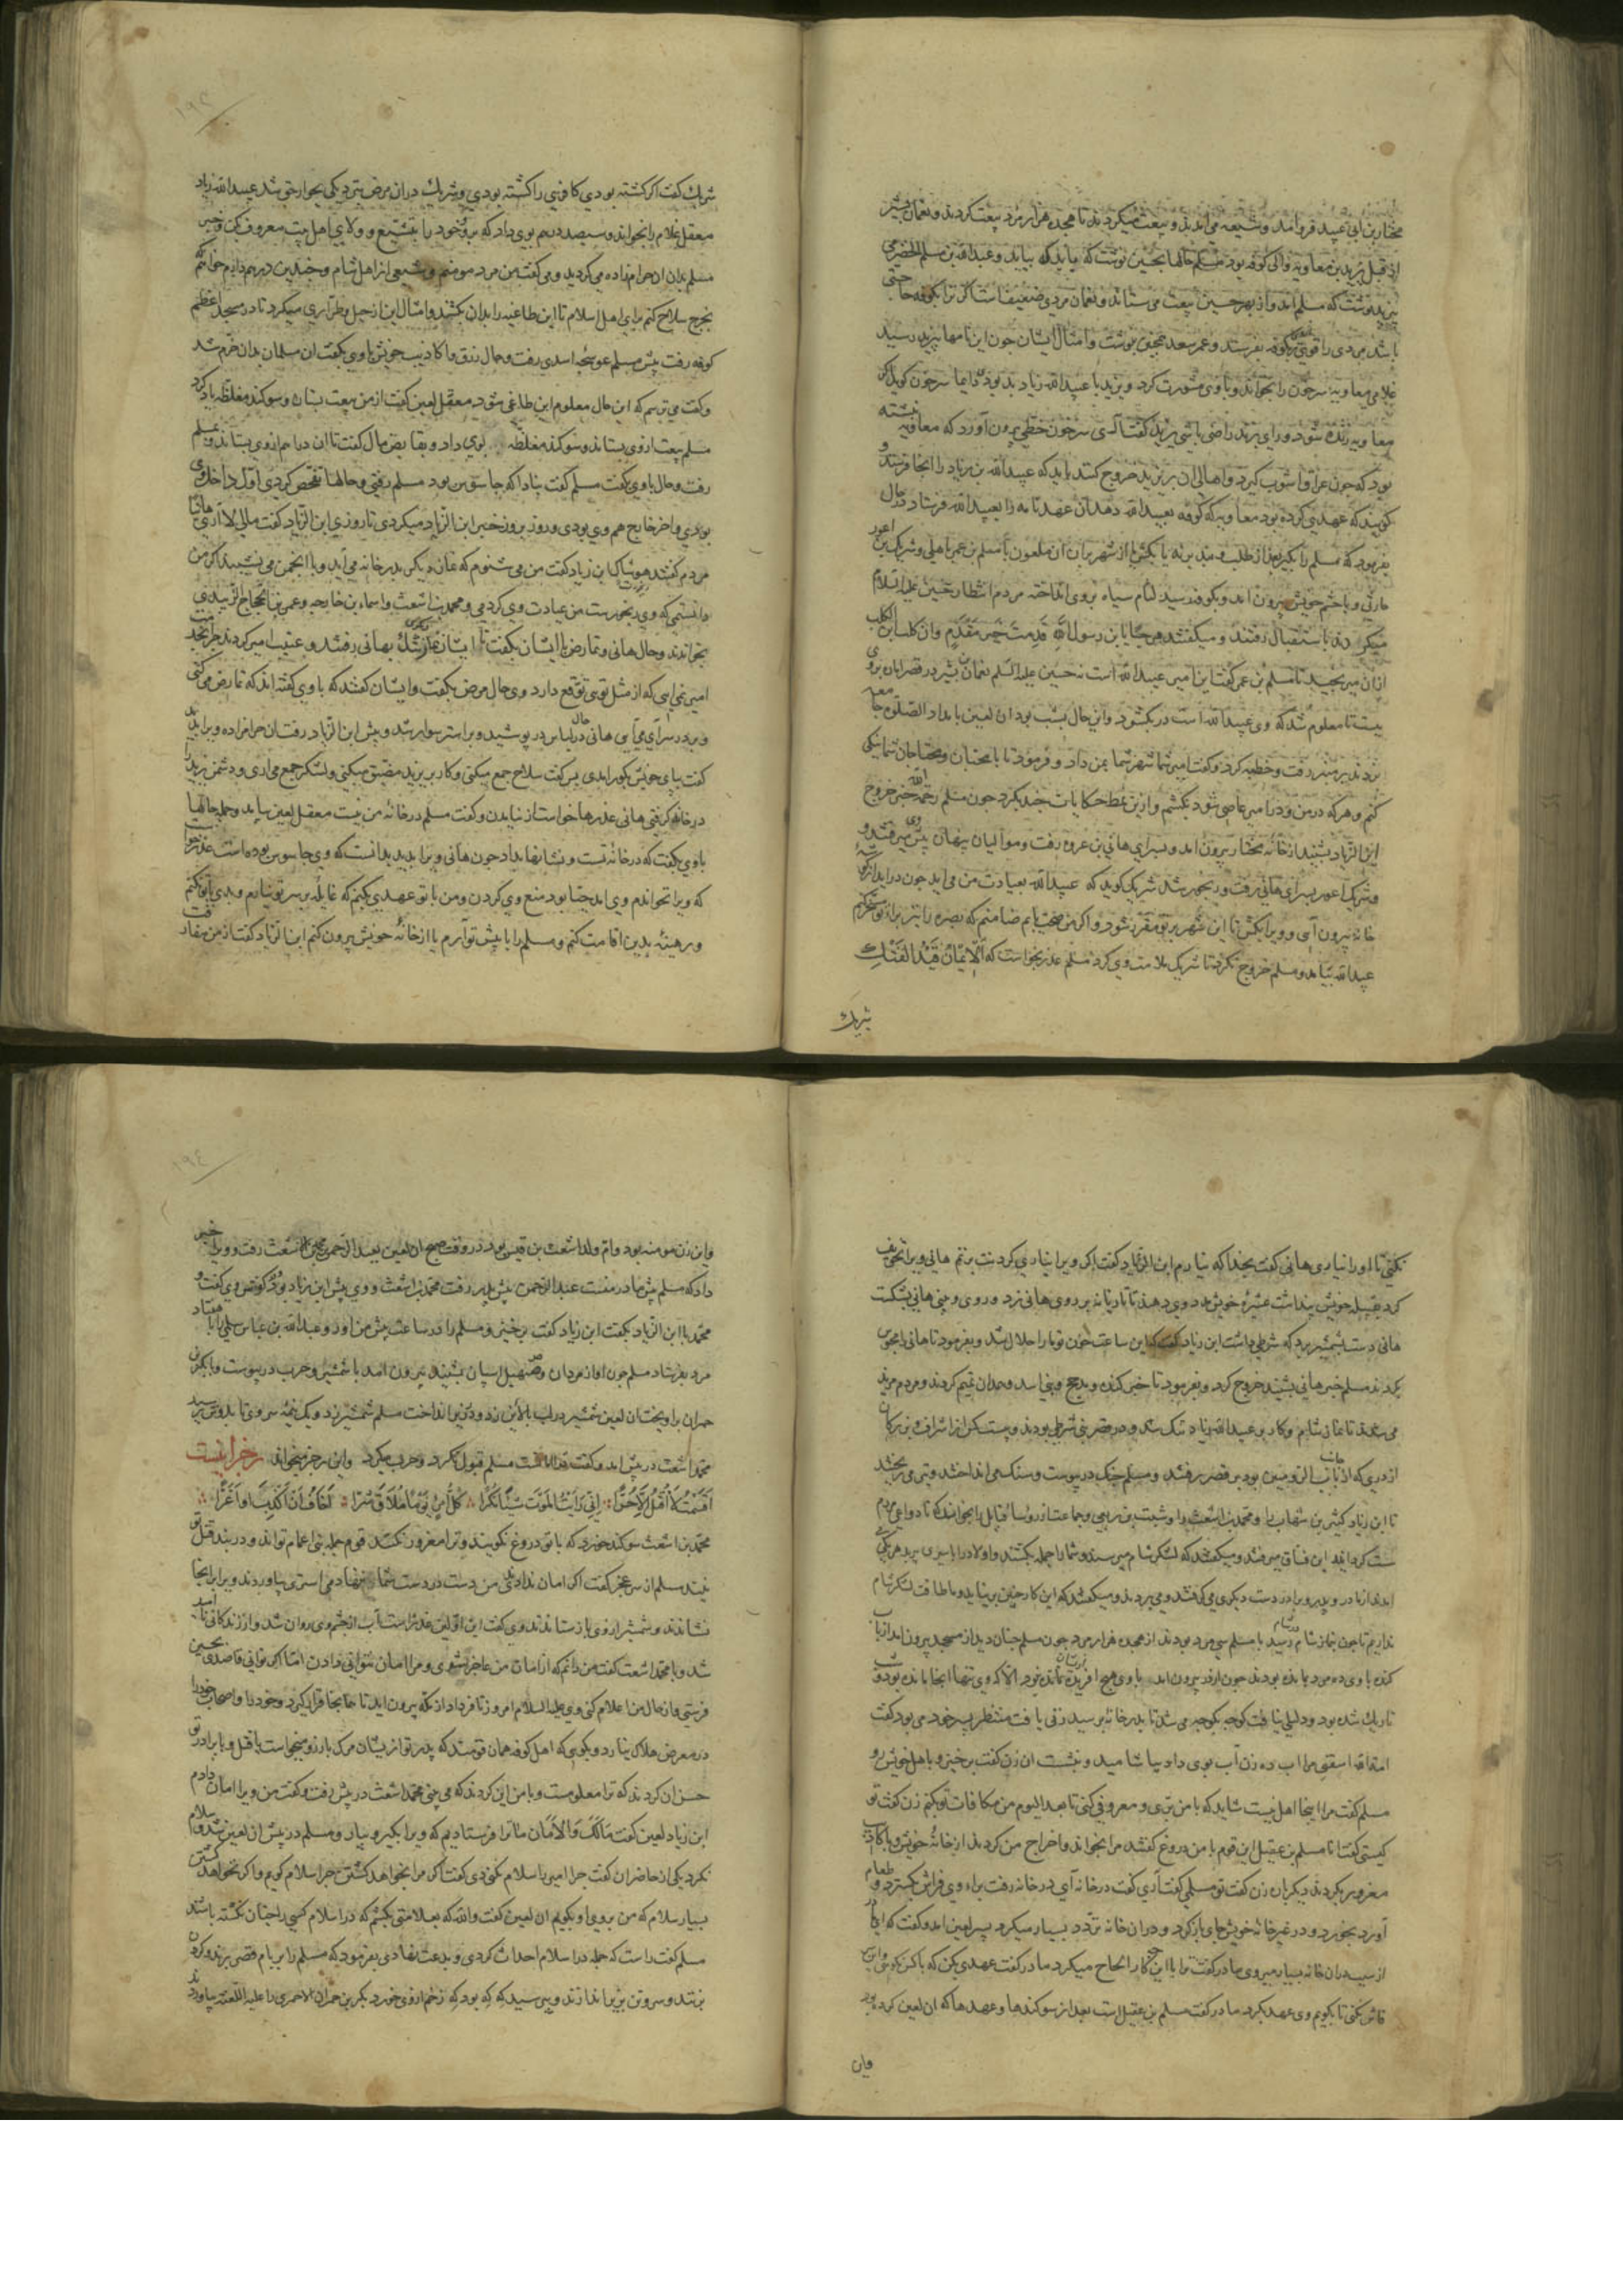 مختار بن ابی عبید فرو آمد و شیعه می‌آمدند و بیعت میکردند تا هجده هزار مرد بیعت کردند و نعمان بشیر
از قبل یزید بن معاویه والی کوفه بود مسلم حالها بحسین نوشت که باید که بیاید و عبدالله بن مسلم الحضرمی
بیزید نوشت که مسلم آمد و از بهر حسین بیعت می‌ستاند و نعمان مردی ضعیفست اگر ترا بکوفه حاجتی
باشد مردی را قوی بکوفه بفرست و عمر سعد همچنین نوشت و امثال ایشان چون این نامها بیزید رسید
غلامی معاویه سرجون را بخواند و با وی مشورت کرد و یزید با عبیدالله زیاد بد بود دایما سرجون گوید اگر
معاویه زنده شود و رای زند راضی باشی یزید گفت آری سرجون خطی بیرون آورد که معاویه نبشته
بود که چون عراق آشوب گیرد و اهالی آن بر یزید خروج کنند باید که عبیدالله بن زیاد را آنجا فرستد و
گویند که عهدی کرده بود معاویه که کوفه بعبیدالله دهد آن عهدنامه را بعبیدالله فرستاد در حال
بفرمود که مسلم را بگیر بعد از طلب و بند برنه یا بکش یا از شهر بران آن ملعون با مسلم بن عمر باهلی و شریک بن اعور
حارثی و با حشم خویش بیرون آمد و بکوفه رسید لثام سیاه بروی انداخته مردم انتظار حسین علیه السلام
میکردند باستقبال رفتند و میگفتند مرحبا یابن رسول الله قدمت خیر مقدم و آن کلب ابن الکلب
از آن میرنجید تا مسلم بن عمر گفت این امیر عبیدالله است نه حسین علیه السلم نعمان بن بشیر در قصر امان بروی
ببست تا معلوم شد که وی عبیدالله است در بگشود و این حال بشب بود آن لعین بامداد الصلوة جامعه
زدند بر منبر رفت و خطبه کرد و گفت امیر شما شهر شما بمن داد و فرمود تا با محبان و محتاجان شما نیکی
کنم و هر که در من و در امیر عاصی شود بکشم و ازین نمط حکایات چند بکرد چون مسلم رحمه الله خبر خروج
ابن الزیاد بشنید از خانه مختار بیرون آمد و بسرای هانی بن عروه رفت و موالیان پنهان پیش وی میرفتند و
و شریک اعور بسرای هانی رفت و رنجور شد شریک گوید که عبیدالله بعیادت من می‌آید چون در آید از
خانه بیرون آی و ویرا بکش تا این شهر بر تو مقرر شود و اگر من صحت یابم ضامنم که بصره را نیز برای تو مسخر کنم
عبیدالله بیامد و مسلم خروج نکرد تا شریک ملامت وی کرد مسلم عذر بخواست که الایمان قید الفتک
شریک
شریک گفت اگر کشته بودی کافری را کشته بودی و شریک در آن مرض بنزدیکی بجوار حق شد عبیدالله زیاد
معقل غلام را بخواند و سیصد درم بوی داد که برو و خود را بتشیع و ولای اهل بیت معروف کن و خبر
مسلم بدان آن حرامزاده می‌گردید و می‌گفت من مرد مومنم و شیعی از اهل شام و چندین درهم دارم خواهم که
بخرج سلاح کنم برای اهل اسلام تا این طاغیه را بدان بکشند و امثال این از حیل و طراری میکرد تا در مسجد اعظم
کوفه رفت پیش مسلم عوسجه اسدی رفت و حال زرق و اکاذیب خویش با وی بگفت آن مسلمان بدان خرم شد
و گفت می‌ترسم که این حال معلوم این طاغی شود معقل لعین گفت از من بیعت بستان و سوگند مغلظه یاد کرد
مسلم بیعت از وی بستاند و سوگند مغلظه بوی داد و بقابض مال گفت تا آن دراهم از وی بستاند و نزد مسلم
رفت و حال با وی گفت مسلم گفت مبادا که جاسوس بود مسلم رفتی و حالها تفحص کردی اول داخل وی
بودی و آخر خارج هم وی بودی و روز بروز خبر ابن الزیاد میکردی تا روزی ابن الزیاد گفت مالی لا اری هانیا
مردم گفتند هو شاک ابن زیاد گفت من می‌شنوم که عنان دیگر بدر خانه می‌آید و با انجمن می‌نشیند اگر من
دانستمی که وی رنجورست من عیادت وی کردمی و محمد بن اشعث و اسماء بن خارجه و عمر بن الحجاج الزبیدی
بخواندند و حال هانی و تمارض با ایشان بگفت تا ایشان نماز دیگر شد بهانی رفتند و عتیب امیر کردند چرا بخدمت
امیر نمی‌آیی که از مثل تویی توقع دارد وی حال مرض بگفت و ایشان گفتند که با وی گفته‌اند که تمارض می‌کنی
و بر در سرای می‌آیی هانی در حال لباس در پوشید و بر استر سوار شد و پیش ابن الزیاد رفت آن حرامزاده ویرا بدید
گفت بپای خویش بگور آمدی پس گفت سلاح جمع میکنی و کار بر یزید مضیق میکنی و لشکر جمع می‌آری و دشمن یزید را
در خانه گرفتی هانی عذرها خواست از نیامدن و گفت مسلم در خانه من نیست معقل لعین بیامد و جمله حالها
با وی گفت که در خانه تست و نشانها بداد چون هانی ویرا بدید بدانست که وی جاسوس بوده است عذر خواست
که ویرا نخواندم وی آمد جنایت بود منع وی کردن و من با تو عهدی بکنم که غایله بر سر تو نیارم و بدی با تو نکنم
و رهینه بدین اقامت کنم و مسلم را با پیش تو آرم یا از خانه خویش بیرون کنم ابن الزیاد گفت از من مفارقت
نکنی تا او را نیاری هانی گفت بخدا که نیارم ابن الزیاد گفت اگر ویرا نیاری گردنت بزنم هانی ویرا تخویف
کرد بقبیله خویش پنداشت عشیره خویش مدد وی دهند تا تازیانه بر روی هانی زد و روی و بینی هانی بشکست
هانی دست بشمشیر برد که شرطی داشت ابن زیاد گفت که این ساعت خون تو ما را حلال شد و بفرمود تا هانی را محبوس
کردند مسلم خبر هانی بشنید خروج کرد و بفرمود تا خبر کنده و مذحج و بنی اسد و همدان تمیم کردند و مردم مزید
می‌شدند تا نماز شام و کار بر عبیدالله زیاد تنگ شد و در قصر سی شرطی بودند و بیست کس از اشراف و بزرگان
از دری که از جانب الرومیین بود بر قصر رفتند و مسلم جنگ در پیوست و سنگ می‌انداختند و تیر می‌ریختند
تا ابن زیاد کثیر بن شهاب را و محمد بن اشعث را و شبث بن ربعی و جماعت از روسا قبایل را بخواند که تا دواعی مردم
سست گردانند این فساق میرفتند و میگفتند که لشکر شام میرسند و شما را جمله بکشند و اولاد را باسیری برند هر یکی
آمدی از مادر و پدر و برادر دست دیگری می‌گرفتند و می‌بردند و میگفتند که این کار حسین بر نیاید و ما طاقت لشکر شام
نداریم تا چون بنماز شام رسید با مسلم سی مرد بودند از هجده هزار مرد چون مسلم چنان دید از مسجد بیرون آمد از باب
کنده با وی ده مرد مانده بودند چون از در بیرون آمد با وی هیچ آفریده نمانده بود الا که وی تنها آنجا مانده بود و شب
تاریک شده بود و دلیلی نیافت کوچه بکوچه می‌شد تا بدر خانه برسید زنی یافت منتظر پسر خود می‌بود گفت
امة الله اسقنی مرا آب ده زن آب بوی داد بیاشامید و بنشست آن زن گفت برخیز و باهل خویش رو
مسلم گفت مرا اینجا اهل نیست شاید که با من بری و معروفی کنی تا بعد الیوم من مکافات تو بکنم زن گفت تو
کیستی گفت انا مسلم بن عقیل این قوم با من دروغ گفتند مرا بخواندند و اخراج من کردند از خانه خویش و باکاذیب
مغرور بکردند دیگر بار زن گفت تو مسلمی گفت آری گفت در خانه آی در خانه رفت برای وی فراش بگسترد و طعام
آورد بخورد و در غیر خانه خویش جای باز کرد و در آن خانه تردد بسیار میکرد پسر لعین آمد و گفت که ای مادر
از سبب در آن خانه بسیار میروی مادر گفت ترا با این کار چه الحاح میکرد مادر گفت عهدی بکن که با کس نگویی و این سر
فاش نکنی تا بگویم وی عهد بکرد مادر گفت مسلم بن عقیل است بعد از سوگندها و عهدها که آن لعین کرده بود
واین
واین زن مومنه بود و ام ولد اشعث بن قیس بود در وقت صبح آن لعین بعبدالرحمن محمد بن اشعث رفت و ویرا خبر
داد که مسلم پیش مادر منست عبدالرحمن پیش پدر رفت محمد بن اشعث و وی پیش ابن زیاد بود در گوش وی گفت و
محمد با ابن الزیاد بگفت ابن زیاد گفت برخیز و مسلم را در ساعت پیش من آور و عبدالله بن عباس سلمی را با هفتاد
مرد بفرستاد مسلم چون آواز مردان و صهیل اسپان بشنید بیرون آمد با شمشیر و حرب در پیوست و با بکر بن
حمران برآویخت آن لعین شمشیر در لب بالایین زد و دو بزیر انداخت مسلم شمشیر بزد و یک نیمه سر وی تا بدوش برسید
محمد اشعث در پیش آمد و گفت ترا امانست مسلم قبول نکرد و حرب میکرد و این رجز میخواند رجز اینست
اقسمت لا اقتل الا حرا انی رایت الموت شیئا نکرا کل امرئ یوما ملاق شرا اخاف ان اکذب او اغرا
محمد بن اشعث سوگند خورد که با تو دروغ نگویند و ترا مغرور نکنند قوم جمله بنی اعمام تواند و در بند قتل تو
نیند مسلم از سر عجز گفت اگر امان ندادتی من دست در دست شما ننهادمی استری بیاوردند و ویرا بر آنجا
نشاندند و شمشیر از وی بازستاندند وی گفت این اولین غدرست آب از چشم وی روان شد و از زندگانی ناامید
شد و با محمد اشعث گفت من دانم که از امان من عاجز شوی و مرا امان نتوانی دادن اما اگر توانی قاصدی بحسین
فرستی و از حال من اعلام کنی وی علیه السلام امروز تا فردا از مکه بیرون آید تا همانجا قرار گیرد و خود را و اصحاب خود را
در معرض هلاک نیارد و بگوی که اهل کوفه همان قومند که پدر تو از ایشان مرگ بارزو میخواست یا قتل و با برادر تو
حسن آن کردند که ترا معلومست و با من این کردند که می‌بینی محمد اشعث در پیش رفت و گفت من ویرا امان دادم
ابن زیاد لعین گفت مالک والامان ما ترا فرستادیم که ویرا بگیر و بیار و مسلم در پیش آن لعین شد و سلام
نکرد یکی از حاضران گفت چرا امیر را سلام نکردی گفت اگر مرا بخواهد کشتن چرا سلام گویم و اگر نخواهد کشتن
بسیار سلام که من بروی او بگویم آن لعین گفت والله که بعلامتی بکشم که در اسلام کسی را چنان نکشته باشند
مسلم گفت راست که جمله در اسلام احداث کردی و بدعت نهادی بفرمود که مسلم را بر بام قصر برند و گردن
بزنند و سر و تن بزیر اندازند و بپرسید که که بود که زخم از وی خورد بکر بن حمران الاحمری را علیه اللعنه بیاوردند